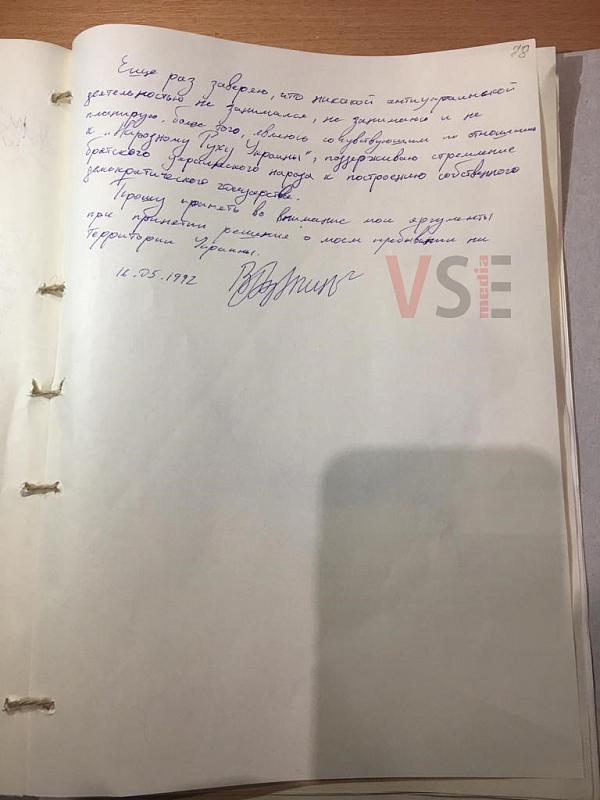 78
Еще раз заверяю, что никакой антиукраинской
деятельностью не занимался, не занимаюсь и не
планирую. Более того, являюсь сочувствующим по отношению
к "Народному Руху Украины", поддерживаю стремление
братского Украинского народа к построению собственного
демократического государства.
Прошу принять во внимание мои аргументы
при принятии решения о моем пребывании на
территории Украины.
12.05.1992
VSE
media